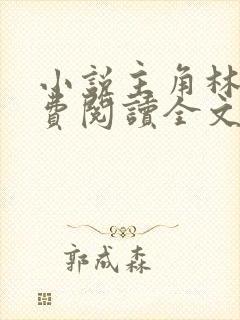 小說主角林
費閱讀全文
郭成森